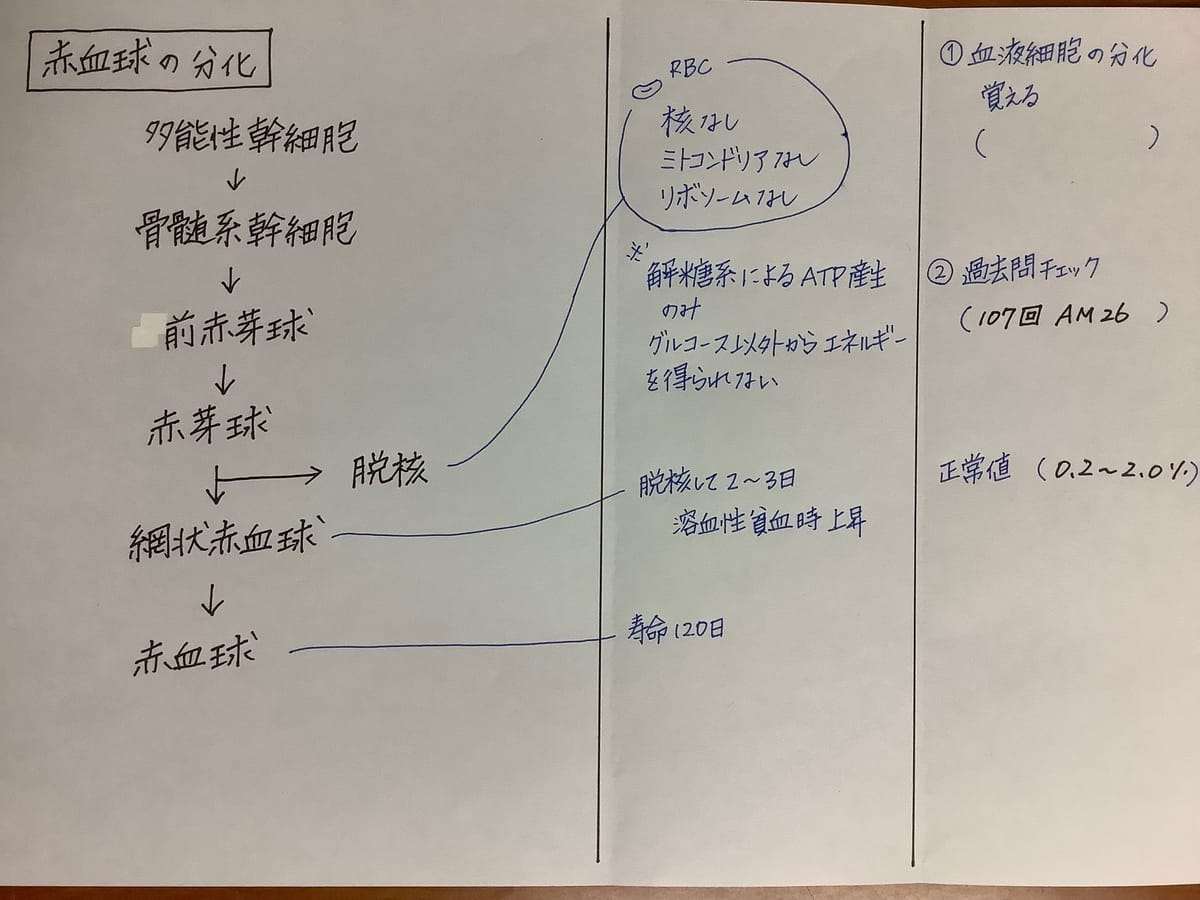 赤血球の分化
多能性幹細胞
↓
骨髄系幹細胞
↓
前赤芽球
↓
赤芽球
↓→ 脱核
網状赤血球
↓
赤血球
RBC
核なし
ミトコンドリアなし
リボソームなし
※
解糖系によるATP産生
のみ
グルコース以外からエネルギー
を得られない
脱核して2~3日
溶血性貧血時上昇
寿命120日
① 血液細胞の分化
覚える
(　　　　)
② 過去問チェック
(107回 AM26 )
正常値 (0.2~2.0%)